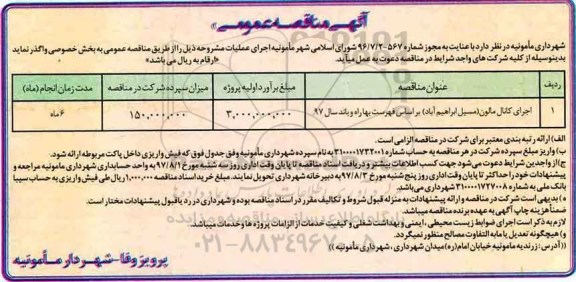 آگهی مناقصه عمومی
شهرداری مأمونیه در نظر دارد با عنایت به مجوز شماره ۵۶۷-۹۶/۷/۲ شورای اسلامی شهر مأمونیه اجرای عملیات مشروحه ذیل را از طریق مناقصه عمومی به بخش خصوصی واگذار نماید
بدینوسیله از کلیه شرکت های واجد شرایط در مناقصه دعوت به عمل میآید. «ارقام به ریال می باشد»
ردیف عنوان مناقصه مبلغ برآورد اولیه پروژه میزان سپرده شرکت در مناقصه مدت زمان انجام (ماه)
۱ اجرای کانال مالون (مسیل ابراهیم آباد) بر اساس فهرست بها راه و باند سال ۹۷ ۳,۰۰۰,۰۰۰,۰۰۰ ۱۵۰,۰۰۰,۰۰۰ ۶ ماه
الف) ارائه رتبه بندی معتبر برای شرکت در مناقصه الزامی است.
ب) واریز مبلغ سپرده شرکت در هر مناقصه به حساب شماره ۳۱۰۰۰۰۱۷۳۲۰۰۱ به نام سپرده شهرداری مأمونیه وفق جدول فوق که فیش واریزی داخل پاکت مربوطه ارائه شود.
ج) از واجدین شرایط دعوت می شود جهت کسب اطلاعات بیشتر و دریافت اسناد مناقصه تا پایان وقت اداری روز سه شنبه مورخ ۹۷/۸/۱ به واحد حسابداری شهرداری مامونیه مراجعه و
پیشنهادات خود را حداکثر تا پایان وقت اداری روز پنج شنبه مورخ ۹۷/۸/۳ به دبیرخانه شهرداری تحویل نمایند. مبلغ خرید اسناد مناقصه ۱,۰۰۰,۰۰۰ ریال طی فیش واریزی به حساب سیبا
بانک ملی به شماره ۳۱۰۰۰۰۱۷۲۷۰۰۸ شهرداری می باشد.
ه) بدیهی است شرکت در مناقصه و ارائه پیشنهادات به منزله قبول شروط و تکالیف مقرر در اسناد مناقصه بوده و شهرداری در رد یا قبول پیشنهادات مختار است.
ضمناً هزینه چاپ آگهی به عهده برنده مناقصه میباشد.
لازم به ذکر است اجرای ضوابط زیست محیطی، ایمنی و بهداشت شغلی و کیفیت خدمات از الزامات پروژه ها و خدمات میباشد.
و) هیچگونه تعدیل یا مابه التفاوت مصالح منظور نمیگردد.
((آدرس: زرندیه مامونیه خیابان امام (ره) میدان شهرداری، شهرداری مأمونیه))
۰۲۱-۸۸۳۴۹۶۷۰
پرویز وفا - شهردار مأمونیه